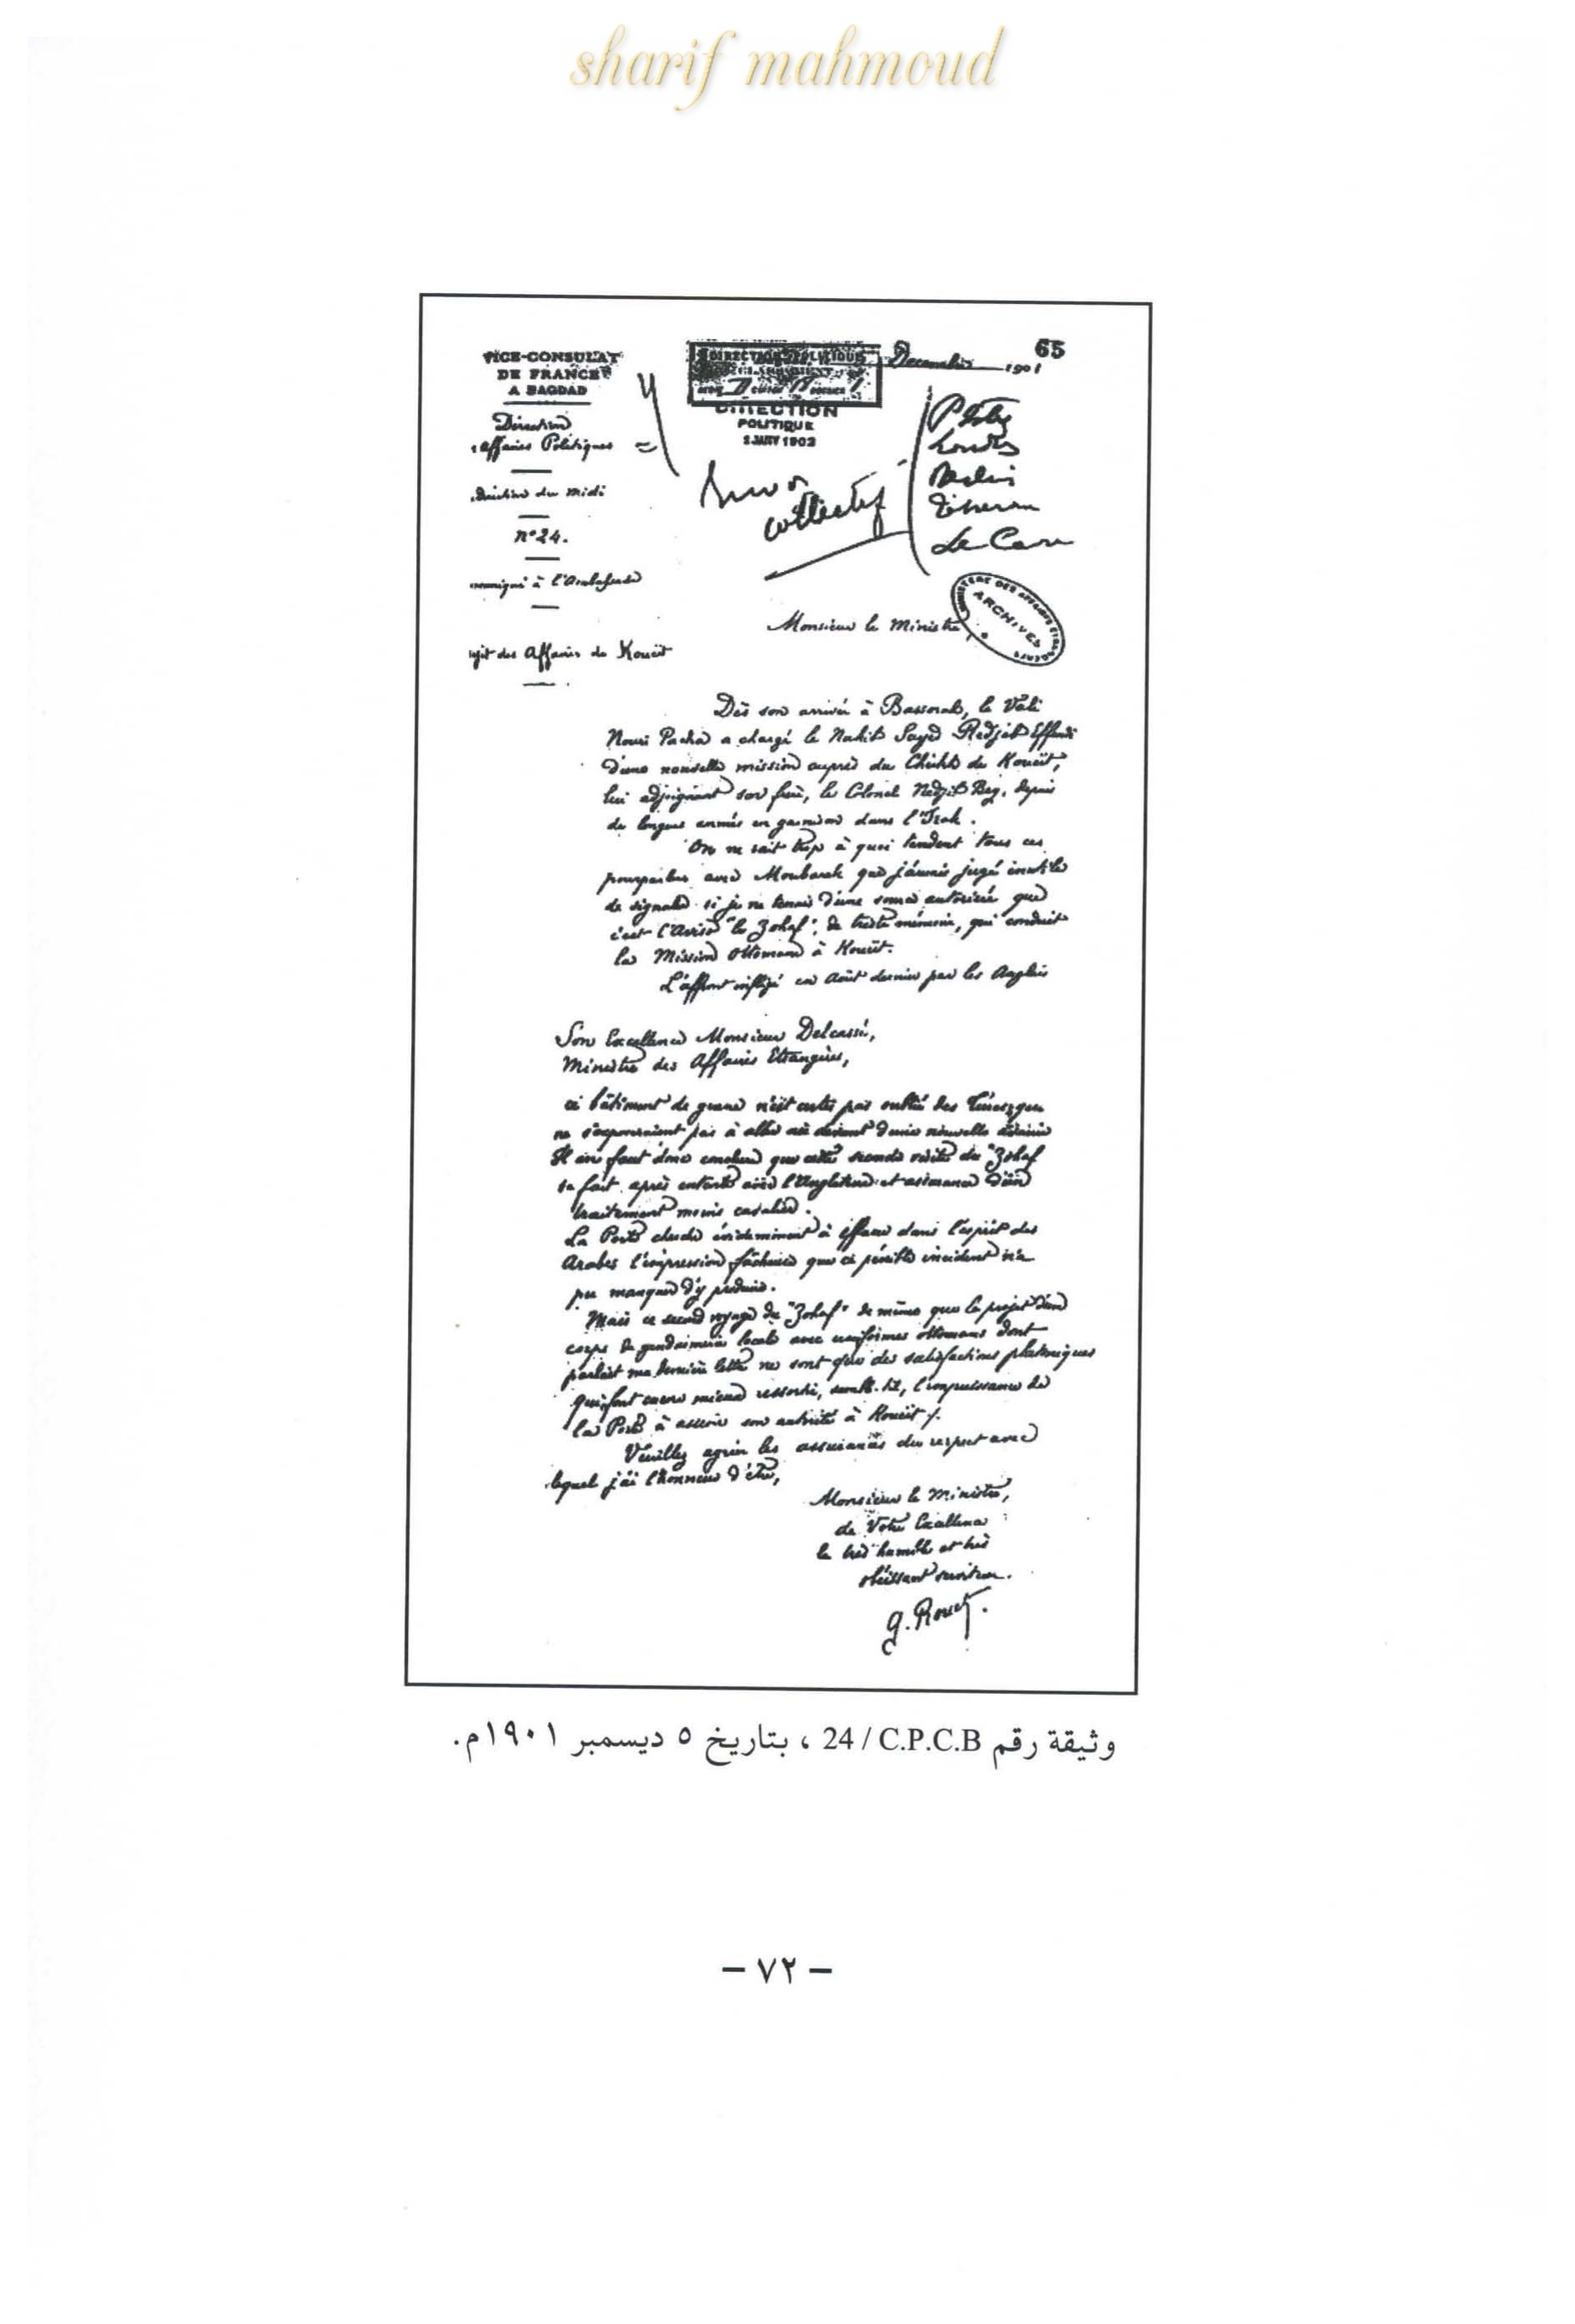 sharif mahmoud
65
VICE-CONSULAT
DE FRANCE
A BAGDAD
Direction
Affaires Politiques
Direction du midi
n° 24.
à l'Ambassade
des Affaires de Koueït
DIRECTION POLITIQUE
Décembre 1901
DIRECTION
POLITIQUE
JANV 1902
collectif
Londres
Berlin
Téheran
Le Caire
ARCHIVES
Monsieur le Ministre,
Dès son arrivée à Bassorah, le Vali
Nouri Pacha a chargé le Nakib Sayed Redjeb Effendi
d'une nouvelle mission auprès du Cheikh de Koueït,
lui adjoignant son frère, le Colonel Nedjib Bey, depuis
de longues années en garnison dans l'Irak.
On ne sait trop à quoi tendent tous ces
pourparlers avec Moubarek que j'aurais jugé inutile
de signaler si je ne tenais d'une source autorisée que
c'est l'Aviso "le Zohaf", de triste mémoire, qui conduit
la Mission Ottomane à Koueït.
L'affront infligé en Août dernier par les Anglais
Son Excellence Monsieur Delcassé,
Ministre des Affaires Etrangères,
à ce bâtiment de guerre n'est certes pas oublié des Turcs, qui
ne s'exposeraient pas à aller au devant d'une nouvelle avanie
Il en faut donc conclure que cette seconde visite du "Zohaf
se fait après entente avec l'Angleterre et assurance d'un
traitement moins cavalier.
La Porte cherche évidemment à effacer dans l'esprit des
Arabes l'impression fâcheuse que ce pénible incident n'a
pu manquer d'y produire.
Mais ce second voyage du "Zohaf" de même que le projet d'un
corps de gendarmerie locale avec uniformes ottomans dont
parlait ma dernière lettre ne sont que des satisfactions platoniques
qui font encore mieux ressortir, l'impuissance de
la Porte à asseoir son autorité à Koueït ./.
Veuillez agréer les assurances du respect avec
lequel j'ai l'honneur d'être,
Monsieur le Ministre,
de Votre Excellence
le très humble et très
obéissant serviteur.
G. Rouet.
وثيقة رقم 24 / C.P.C.B ، بتاريخ ٥ ديسمبر ١٩٠١م.
– ٧٢ –